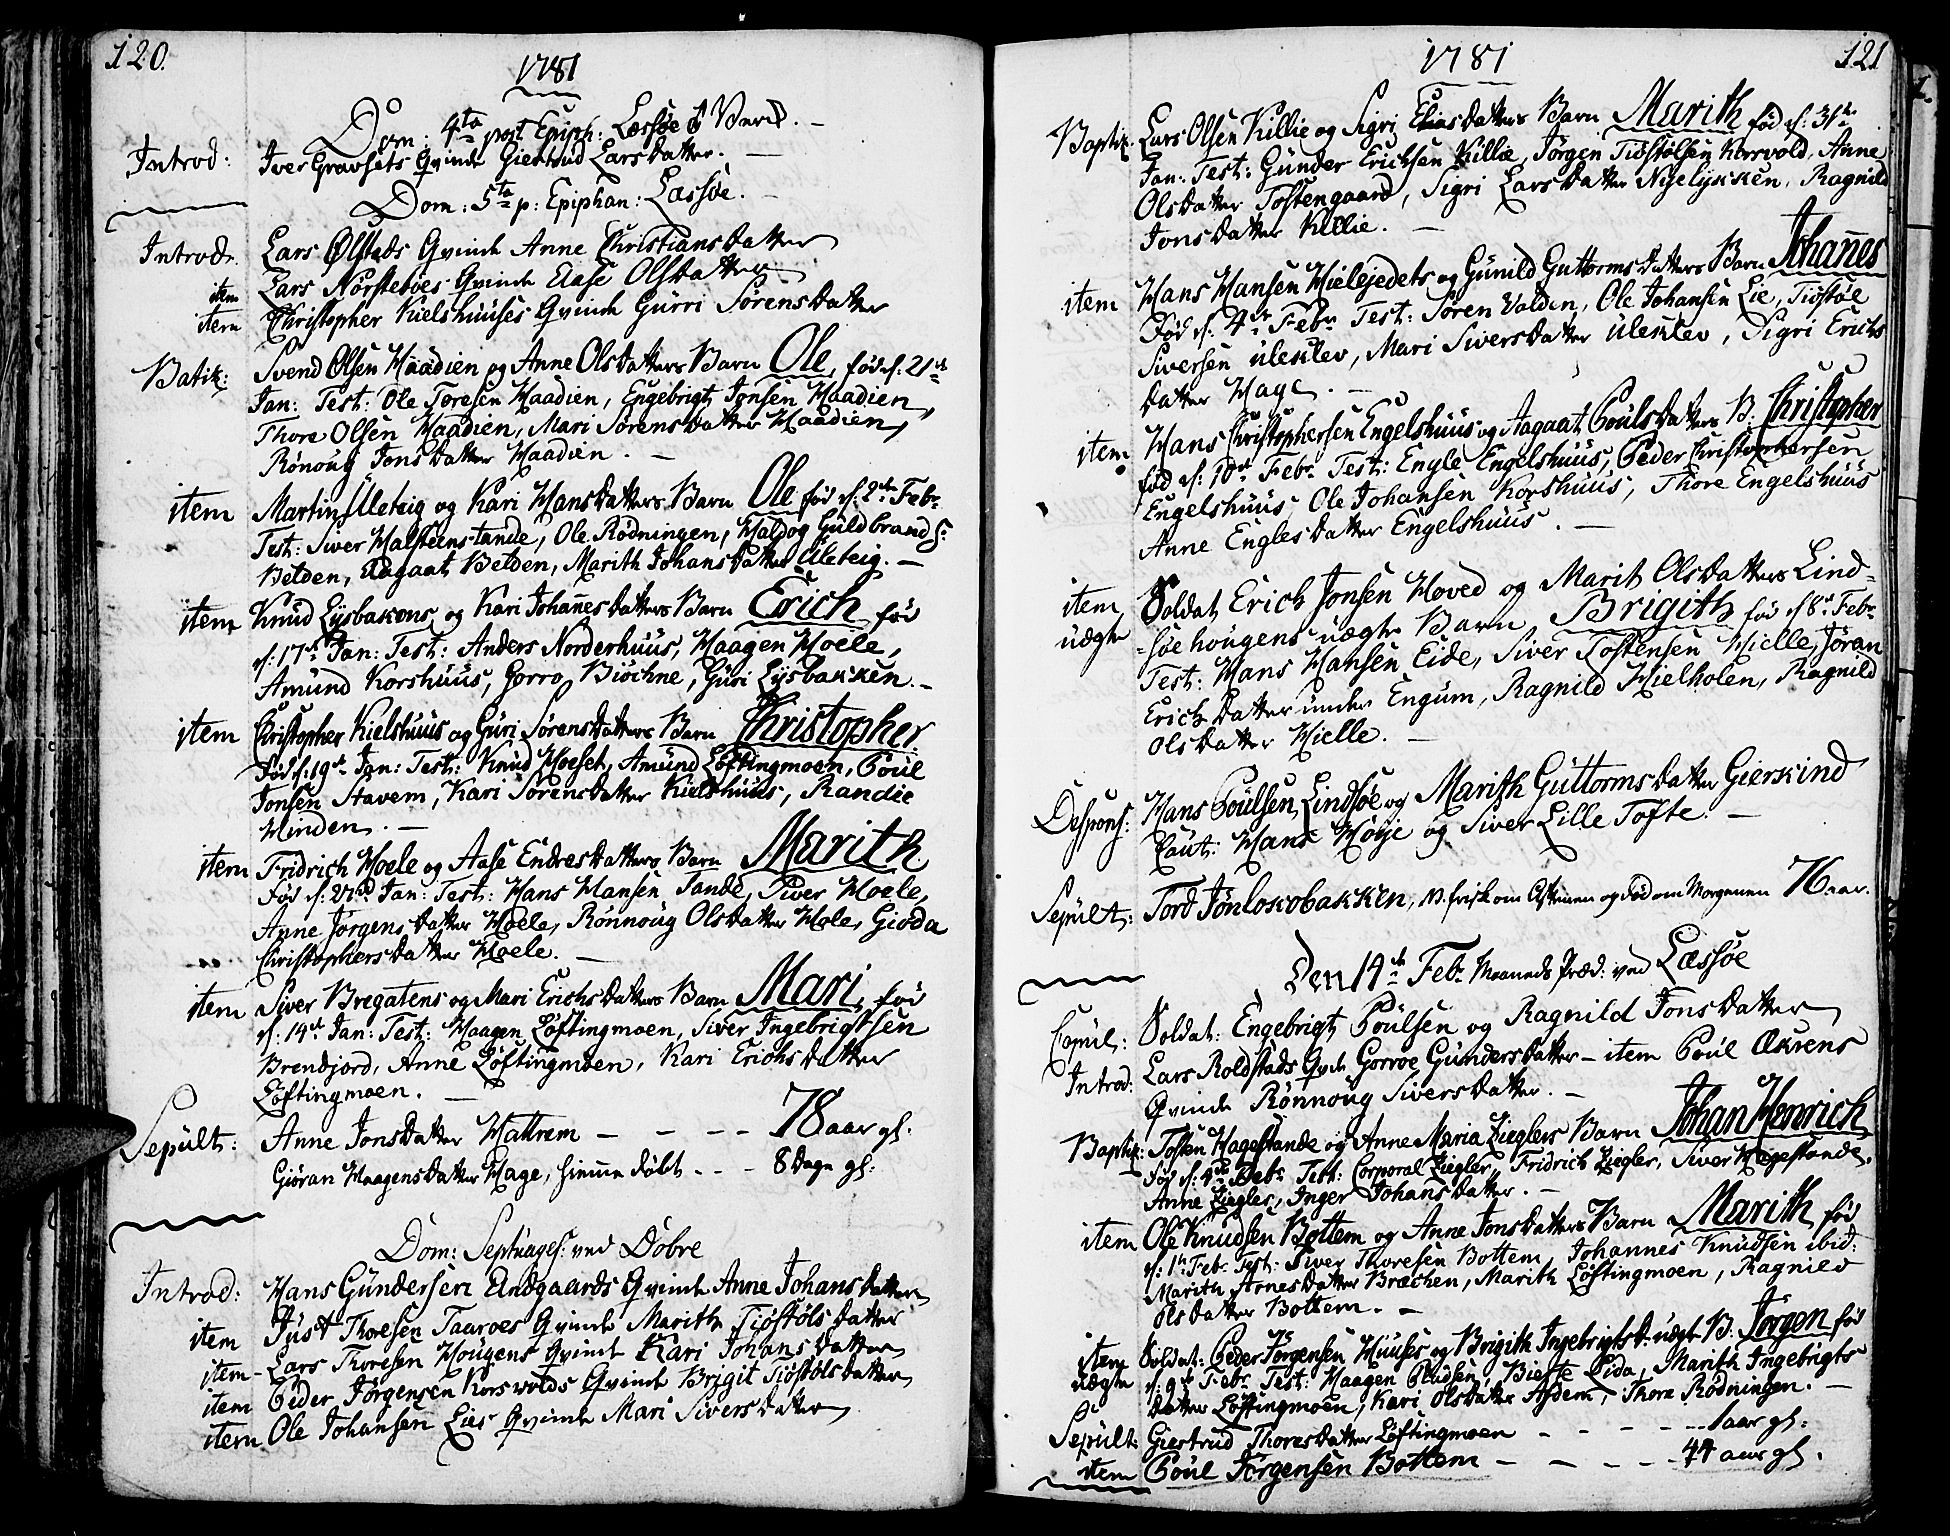 120.
1781
Dom: 4ta post Epiph: Læssøe
Introd: Iver Gravsets Qvinde Giertrud Larsdatter.
Dom: 5ta p: Epiphan: Læssøe.
Introd: Lars Ølstads Qvinde Anne Christiansdatter
item Lars Norstebøes Qvinde Aase Olsdatter
item Christopher Kielshuuses Qvinde Gurri Sørensdatter
Batiz: Svend Olsen Haadien og Anne Olsdatters Barn Ole, fød d: 21de
Jan: Test: Ole Toresen Haadien, Engebrigt Jonsen Haadien,
Thore Olsen Haadien, Mari Sørensdatter Haadien,
Rønoug Jonsdatter Haadien.
item Martin Uleteig og Kari Hansdatters Barn Ole fød d: 2den Febr.
Test: Siver Halsteenstande, Ole Rødningen, Haldog Guldbrands:
Belden, Aagaat Belden, Marith Johansdatter Uleteig.
item Knud Lysbakens og Kari Johannesdatters Barn Erich fød
d: 17de Jan: Test: Anders Norderhuus, Haagen Hoele,
Amund Korshuus, Gorro Biøchne, Guri Lysbakken.
item Christopher Kielshuus og Guri Sørensdatters Barn Christopher
Fød d: 19de Jan: Test: Knud Hoeset, Amund Løftingmoen, Poul
Jonsen Stavem, Kari Sørensdatter Kielshuus, Randie
Hinden.
item Fridrich Hoele og Aase Endresdatters Barn Marith.
Fød d: 22d Jan: Test: Hans Hansen Tande, Siver Hoele,
Anne Jørgensdatter Hoele, Rønnoug Olsdatter Hole, Gioda
Christophersdatter Hoele.
item Siver Bregatens og Mari Erichsdatters Barn Mari, fød
d: 14de Jan: Test: Haagen Løftingmoen, Siver Ingebrigtsen
Brendjord, Anne Løftingmoen, Kari Erichsdatter
Løftingmoen.
Sepult: Anne Jonsdatter Hattrem - - - - 78 aar gl.
Giøran Haagensdatter Hage, hiemme døbt - - - 8 Dage gl:
Dom: Septuages: ved Dobre
Introd: Hans Gundersen Andgaards Qvinde Anne Johansdatter
item Just Thoresen Taaroes Qvinde Marith Tiøstølsdatter
item Lars Thoresen Hougens Qvinde Kari Johansdatter
item Peder Jørgensen Korsvolds Qvinde Brigit Tiøstølsdatter
item Ole Johansen Lies Qvinde Mari Siversdatter
1781
121
Baptiz: Lars Olsen Killie og Sigri Eliasdatters Barn Marith fød d: 31te
Jan: Test: Gunder Erichsen Killie, Jørgen Tiøstølsen Korsvold, Anne
Olsdatter Tostengaard, Sigri Larsdatter Nyelykken, Ragnild
Jonsdatter Killie.
item Hans Hansen Hielejedets og Gunild Guttormsdatters Barn Johannes
Fød d: 4de Febr Test: Søren Valden, Ole Johansen Lie, Tiøstøl
Siversen Uleklev, Mari Siversdatter Uleklev, Sigri Erichs
datter Hage.
item Hans Christophersen Engelshuus og Aagaat Poulsdatters B. Christopher
fød d: 10de Febr. Test: Engle Engelshuus, Peder Christophersen
Engelshuus, Ole Johansen Korshuus, Thore Engelshuus
Anne Englesdatter Engelshuus.
item Soldat Erich Jonsen Hoved og Marit Olsdatters Lind-
uægte søehougens uægte Barn Brigith fød d 8de Febr.
Test: Hans Hansen Eide, Siver Tostensen Hielle, Jøran
Erichsdatter under Engum, Ragnild Hielholen, Ragnild
Olsdatter Hielle.
Despons: Hans Poulsen Lindsøe og Marith Guttormsdatter Gierskind
Caut: Hans Høye og Siver Lille Tofte.
Sepult: Tord Jonloskobakken, N. frisk om Aftenen og død om Morgenen 76 aar.
Den 14de Febr. Maaneds Præd: ved Læssøe
Copul: Soldat: Engebrigt Poulsen og Ragnild Jonsdatter
Introd: Lars Roldstads Qvde Gorroe Gundersdatter - item Poul Økrens
Qvinde Rønnoug Siversdatter.
Baptiz: Tosten Hagestande og Anne Maria Zieglers Barn Johan Henrich
Test: Corporal Ziegler, Fridrich Ziegler, Siver Hagestande,
Anne Ziegler, Inger Johansdatter.
item Ole Knudsen Bottem og Anne Jonsdatters Barn Marith fød
d: 1te Febr. Test: Siver Thoresen Bottem, Johannes Knudsen ibid:
Marith Arnesdatter Bræchen, Marith Løftingmoen, Ragnild
Olsdatter Bottem.
item Soldat: Peder Jørgensen Huuses og Brigith Ingebrigtsd. uægte B. Jørgen fød
uægte d: 9de Febr. Test: Haagen Knudsen, Bierte Lida, Marith Ingebrigts
datter Løftingmoen, Kari Olsdatter Asdem, Thore Rødningen.
Sepult: Giertrud Thoresdatter Løftingmoen - - - - 1 aar gl:
item Poul Jørgensen Bottem - - - - 44 aar gl.